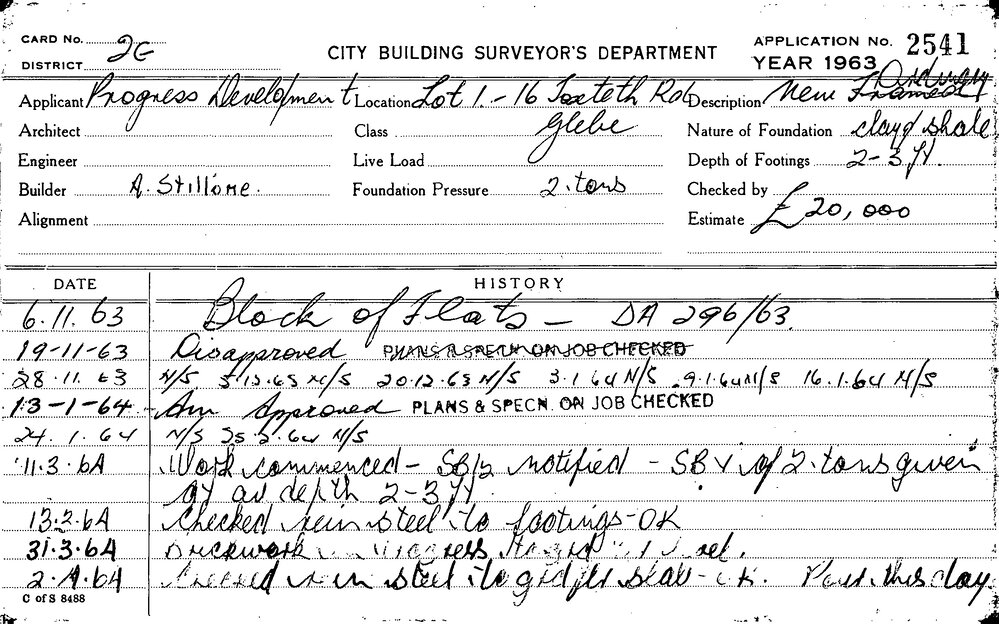 CARD No. 2G
DISTRICT
CITY BUILDING SURVEYOR'S DEPARTMENT
APPLICATION No. 2541
YEAR 1963
Applicant Progress Development Location Lot 1.-16 Toxteth Rd Description New
Architect Class Glebe Nature of Foundation clay & shale
Engineer Live Load Depth of Footings 2-3 ft.
Builder A. Stillone. Foundation Pressure 2.tons Checked by
Alignment Estimate £20,000
DATE HISTORY
6.11.63 Block of Flats - DA 296/63.
19-11-63 Disapproved PLANS & SPECN. ON JOB CHECKED
28.11.63 N/S 5.12.63 N/S 20.12.63 N/S 3.1.64 N/S 9.1.64 N/S 16.1.64 N/S
13-1-64 Am Approved PLANS & SPECN. ON JOB CHECKED
24.1.64 N/S 25.2.64 N/S
11.3.64 Work commenced - notified - of 2.tons given
at av depth 2-3 ft.
13.2.64 Checked rein steel to footings-OK
31.3.64 Brickwork in progress
2.4.64 Checked rein steel to grd flr slab - O.K. Pour this day.
C of S 8488